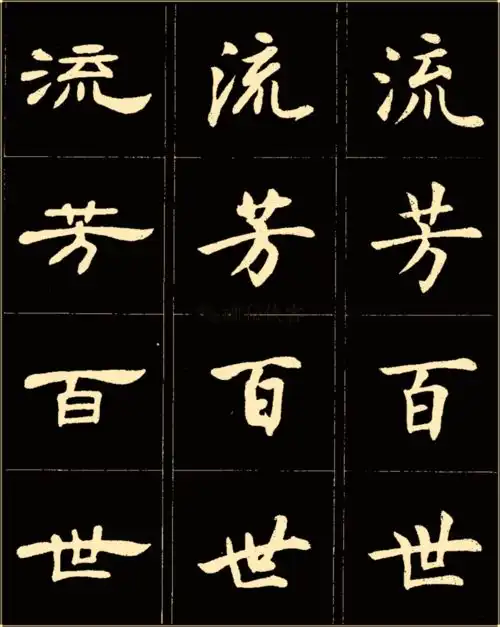 流芳百世
流芳百世
流芳百世